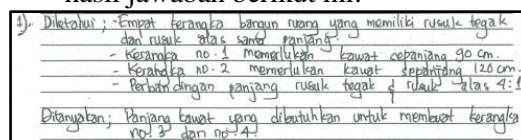 hasil jawaban berikut ini.
1). Diketahui ; - Empat kerangka bangun ruang yang memiliki rusuk tegak
dan rusuk alas sama panjang.
- Kerangka no. 1 memerlukan kawat sepanjang 90 cm.
- Kerangka no. 2 memerlukan kawat sepanjang 120 cm.
- Perbandingan panjang rusuk tegak & rusuk alas 4:1
Ditanyakan; Panjang kawat yang dibutuhkan untuk membuat kerangka
no. 3 dan no. 4.